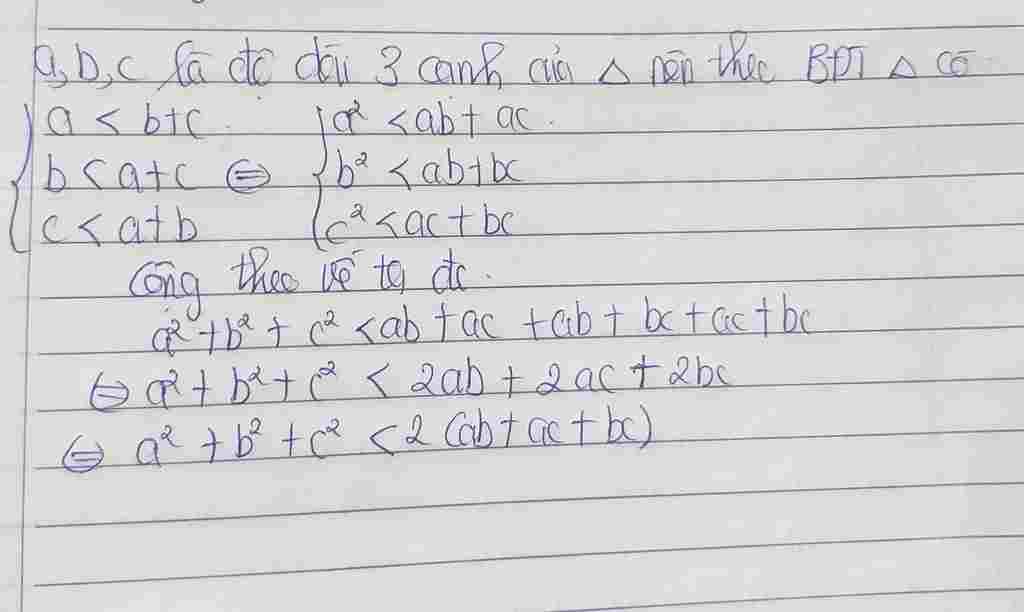 a, b, c là độ dài 3 cạnh của Δ nên theo BĐT Δ có
a < b+c. a² < ab + ac.
b < a+c ⇔ b² < ab+bc
c < a+b c² < ac + bc
Cộng theo vế ta đc.
a² + b² + c² < ab + ac + ab + bc + ac + bc
⇔ a² + b² + c² < 2ab + 2ac + 2bc
⇔ a² + b² + c² < 2 (ab + ac + bc)